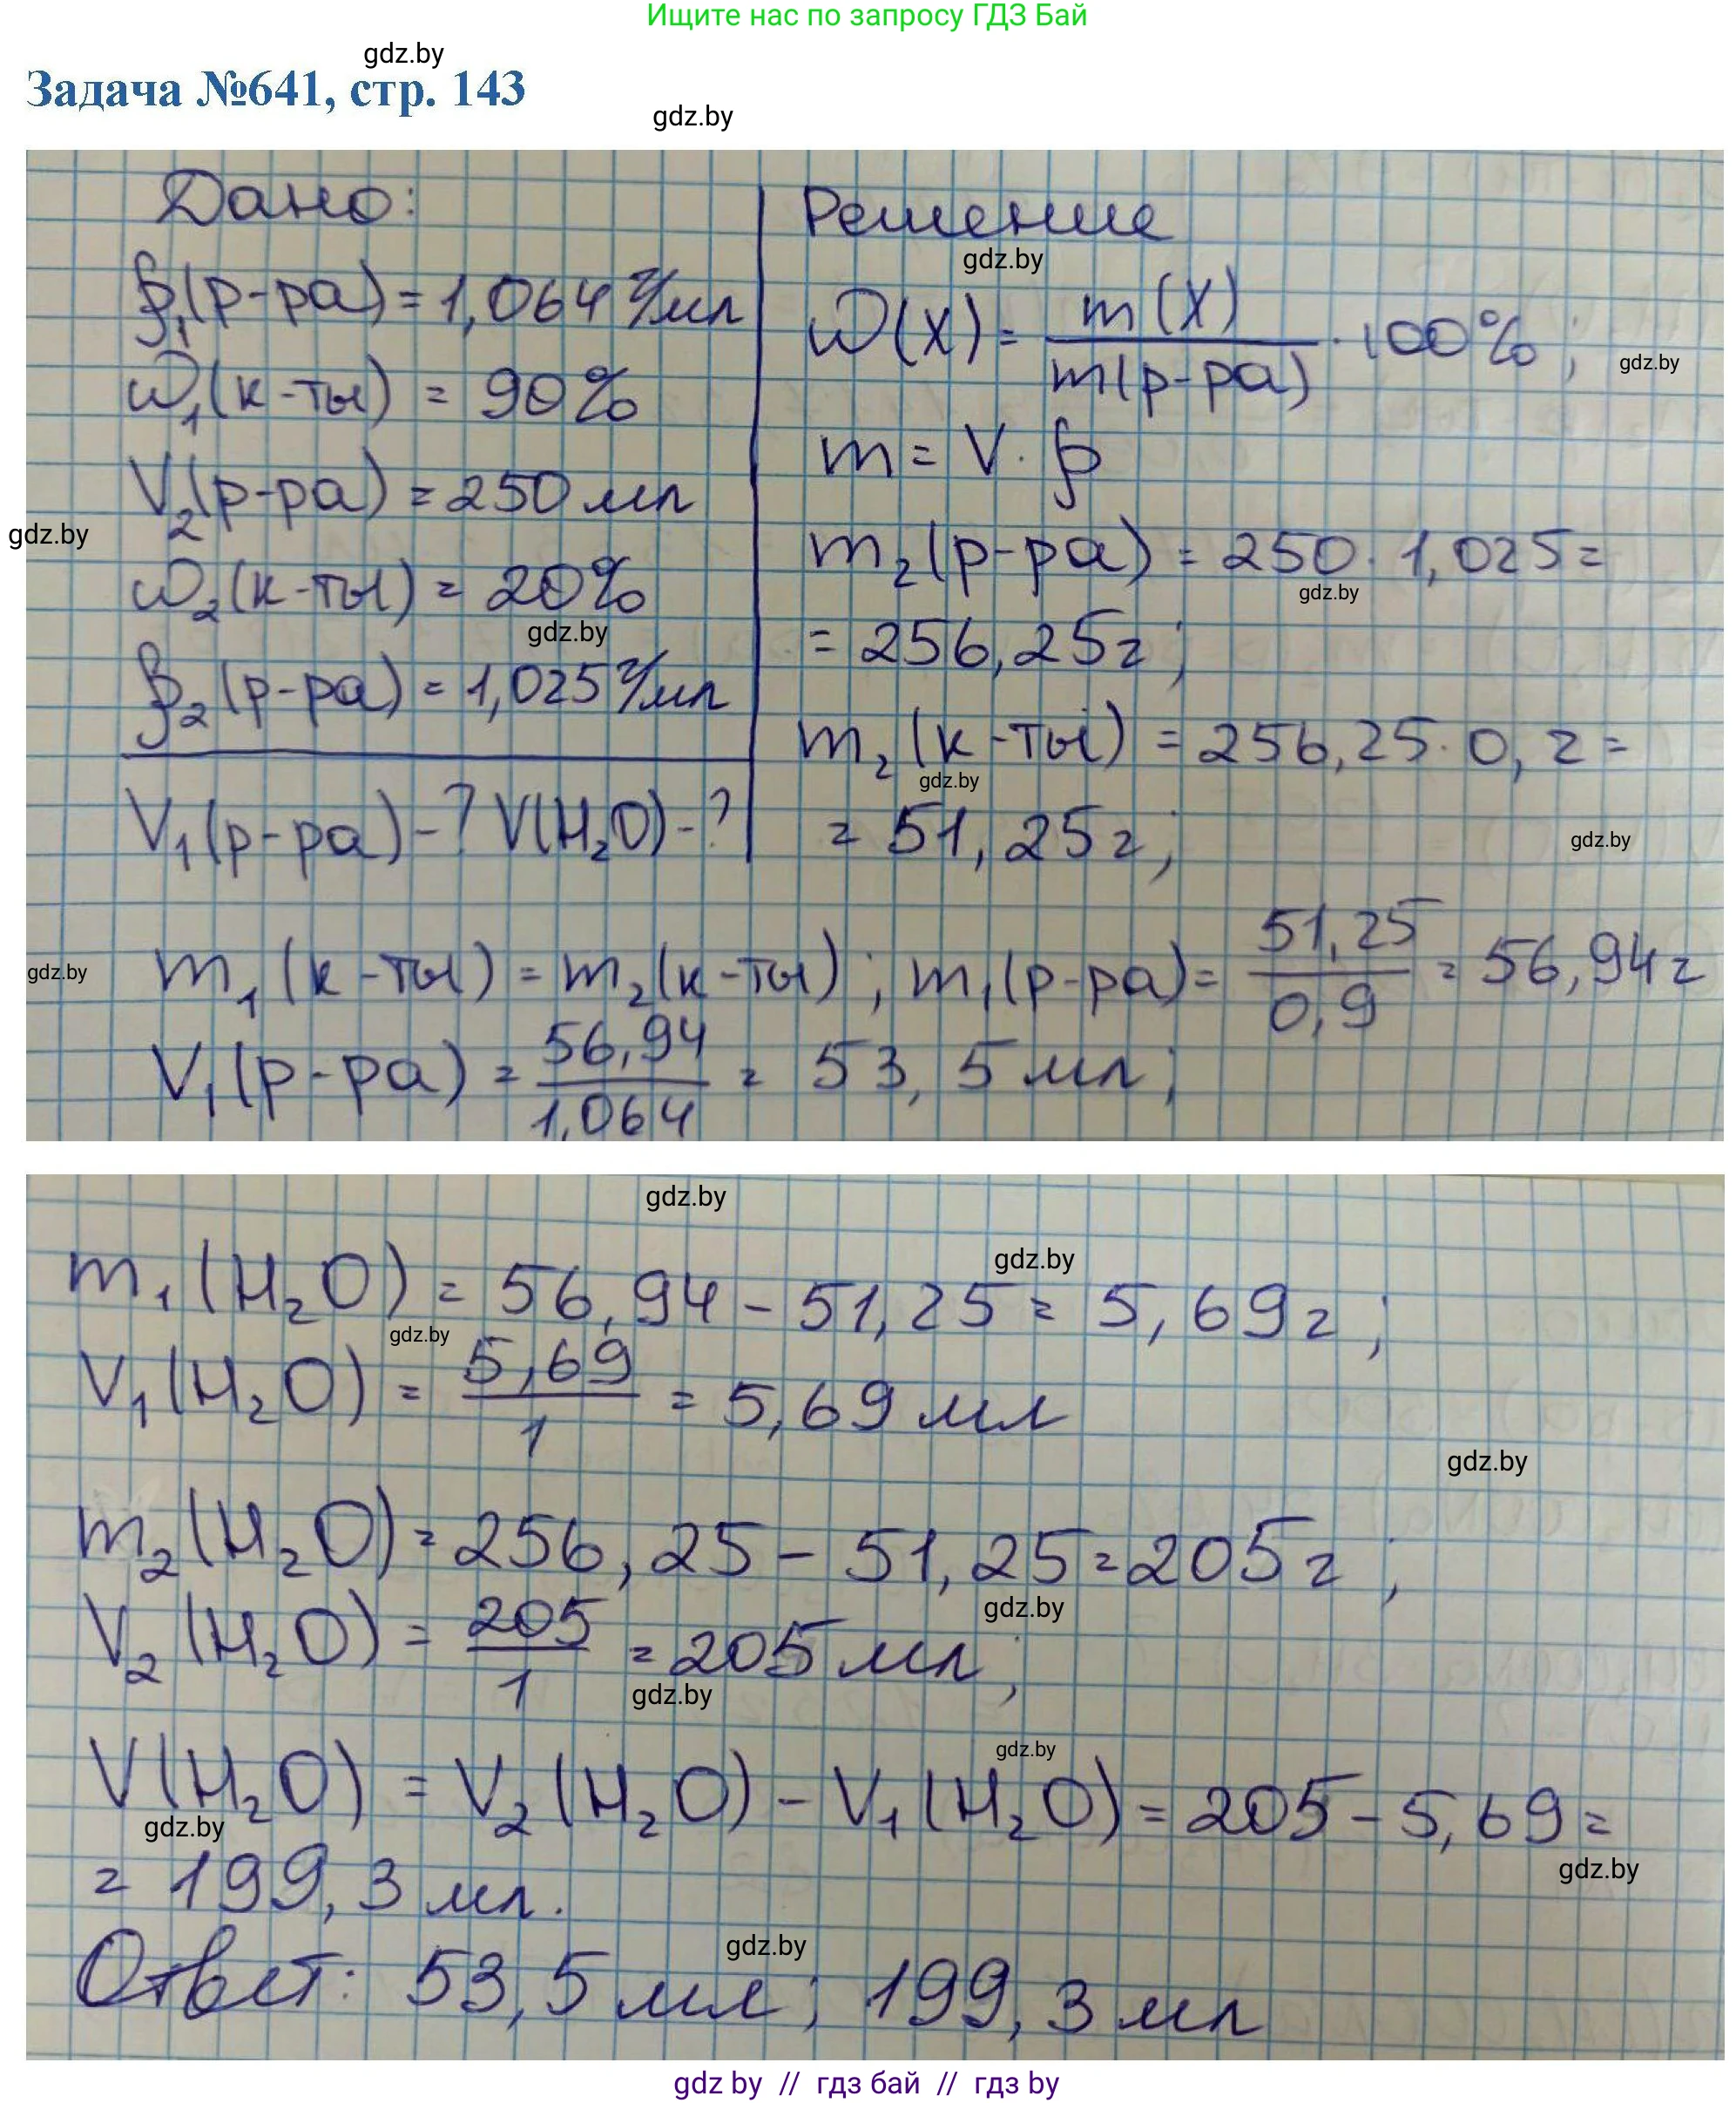 Ищите нас по запросу ГДЗ Бай
gdz.by
Задача №641, стр. 143
gdz.by
Дано:
ρ₁(р-ра) = 1,064 г/мл
ω₁(к-ты) = 90%
V₂(р-ра) = 250 мл
gdz.by
ω₂(к-ты) = 20%
gdz.by
ρ₂(р-ра) = 1,025 г/мл
V₁(р-ра) - ? V(H₂O) - ?
Решение
gdz.by
ω(X) = m(X) / m(р-ра) · 100% ;
gdz.by
m = V · ρ
m₂(р-ра) = 250 · 1,025 =
gdz.by
= 256,25 г ;
m₂(к-ты) = 256,25 · 0,2 =
gdz.by
= 51,25 г ;
gdz.by
gdz.by
m₁(к-ты) = m₂(к-ты) ; m₁(р-ра) = 51,25 / 0,9 = 56,94 г
V₁(р-ра) = 56,94 / 1,064 = 53,5 мл ;
gdz.by
gdz.by
m₁(H₂O) = 56,94 - 51,25 = 5,69 г ;
gdz.by
V₁(H₂O) = 5,69 / 1 = 5,69 мл
gdz.by
m₂(H₂O) = 256,25 - 51,25 = 205 г ;
gdz.by
V₂(H₂O) = 205 / 1 = 205 мл ;
gdz.by
gdz.by
V(H₂O) = V₂(H₂O) - V₁(H₂O) = 205 - 5,69 =
gdz.by
gdz.by
= 199,3 мл.
gdz.by
Ответ: 53,5 мл ; 199,3 мл
gdz by // гдз бай // гдз by